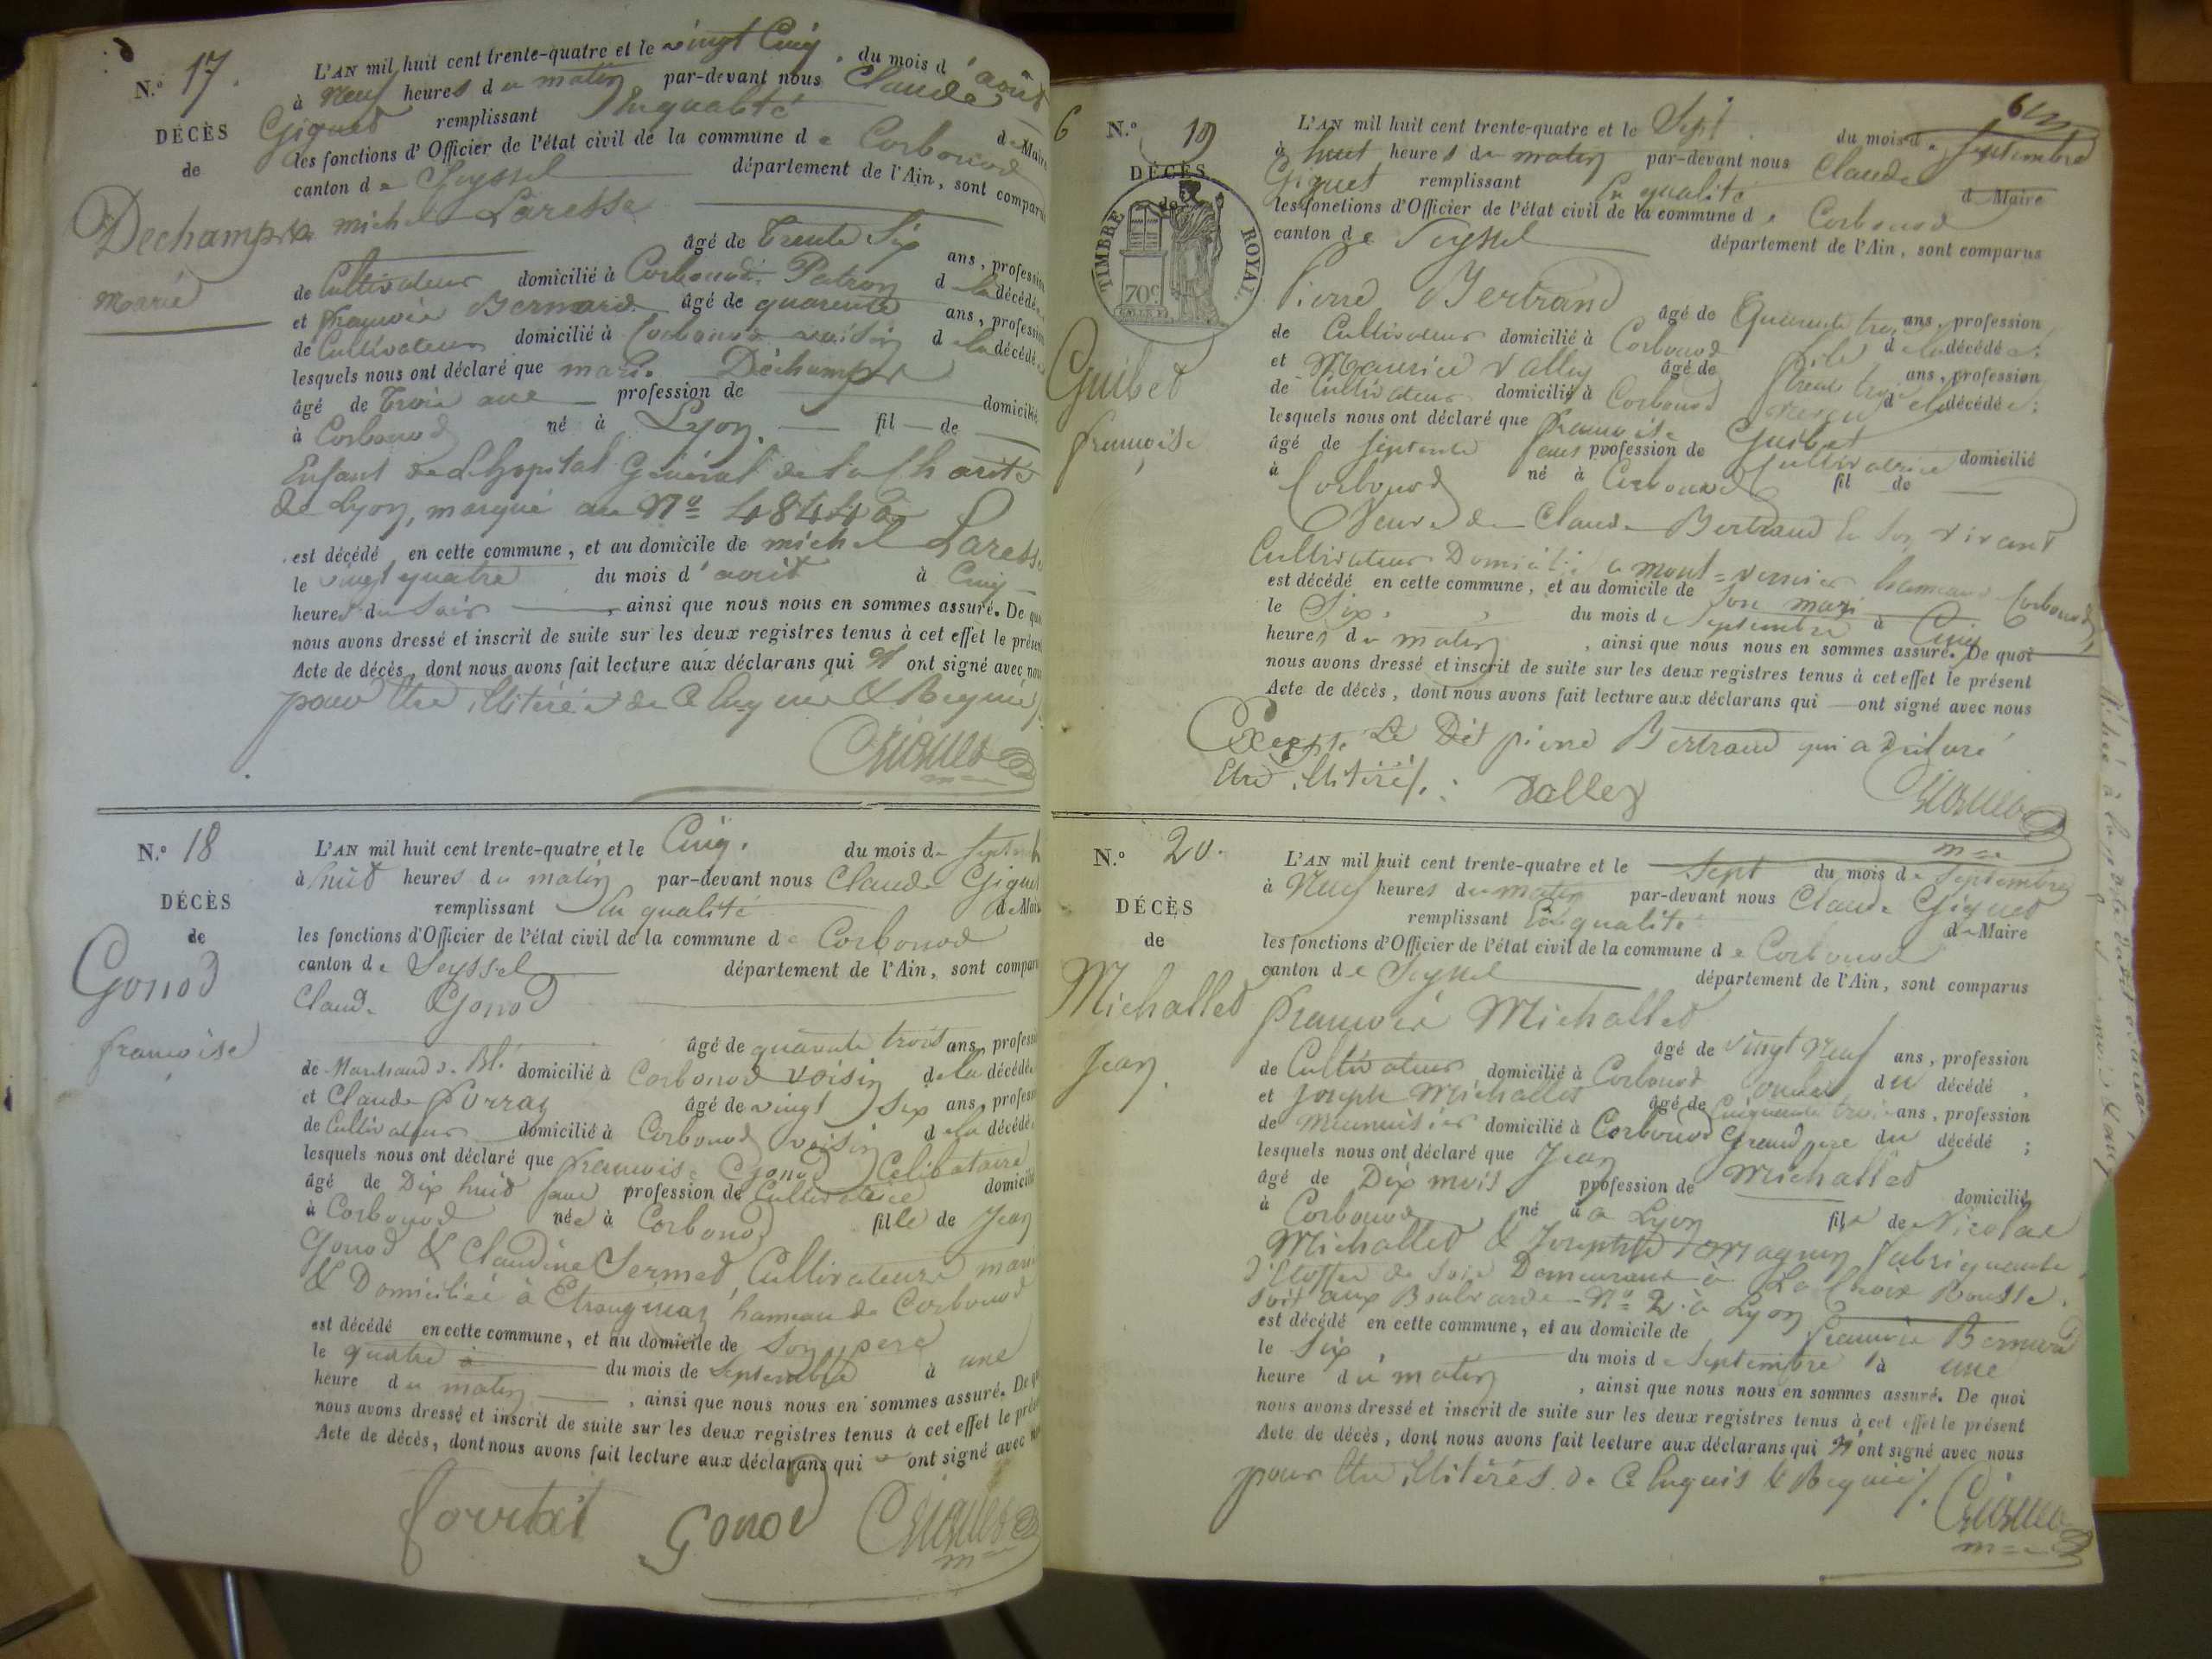 N.º 17.
DÉCÈS
de
Dechamp
Marie
L'AN mil huit cent trente-quatre et le vingt Cinq du mois d'août
à Neuf heures du matin par-devant nous Claude
Giguet remplissant En qualité de Maire
les fonctions d'Officier de l'état civil de la commune de Corbonod
canton de Seyssel département de l'Ain, sont comparus
michel Laresse
âgé de trente Six ans, profession
de Cultivateur domicilié à Corbonod Patron de la décédée
et françois Bernard âgé de quarente ans, profession
de Cultivateur domicilié à Corbonod voisin de la décédée
lesquels nous ont déclaré que marie Dechamp
âgé de trois ans profession de domicilié
à Corbonod né à Lyon fil de
Enfant de L'hopital Général de la Charité
de Lyon, marqué au Nº 48440
est décédé en cette commune, et au domicile de michel Laresse
le vingt quatre du mois d'août à Cinq
heures du Soir, ainsi que nous nous en sommes assuré. De quoi
nous avons dressé et inscrit de suite sur les deux registres tenus à cet effet le présent
Acte de décès, dont nous avons fait lecture aux déclarans qui N'ont signé avec nous
pour être illitérés de Ce Enquis & Requis
Giguet
N.º 18
DÉCÈS
de
Gonod
françoise
L'AN mil huit cent trente-quatre et le Cinq. du mois de Septembre
à huit heures du matin par-devant nous Claude Giguet
remplissant En qualité de Maire
les fonctions d'Officier de l'état civil de la commune de Corbonod
canton de Seyssel département de l'Ain, sont comparus
Claude Gonod
âgé de quarente trois ans, profession
de Marchand de Blé domicilié à Corbonod voisin de la décédée
et Claude âgé de vingt Six ans, profession
de Cultivateur domicilié à Corbonod voisin de la décédée
lesquels nous ont déclaré que françoise Gonod Célibataire
âgé de Dix huit ans profession de Cultivatrice domicilié
à Corbonod née à Corbonod fille de Jean
Gonod & Claudine Sermet, Cultivateurs mariés
& Domiciliés à hameau de Corbonod
est décédé en cette commune, et au domicile de Son pere
le quatre du mois de Septembre à une
heure du matin, ainsi que nous nous en sommes assuré. De quoi
nous avons dressé et inscrit de suite sur les deux registres tenus à cet effet le présent
Acte de décès, dont nous avons fait lecture aux déclarans qui ont signé avec nous
Gonod Giguet
6
N.º 19
DÉCÈS
de
TIMBRE ROYAL.
70c
Guibet
françoise
L'AN mil huit cent trente-quatre et le Sept du mois de Septembre
à huit heures du matin par-devant nous Claude
Giguet remplissant En qualité de Maire
les fonctions d'Officier de l'état civil de la commune de Corbonod
canton de Seyssel département de l'Ain, sont comparus
Pierre Bertrand
âgé de Quarente trois ans, profession
de Cultivateur domicilié à Corbonod fils de la décédée
et Maurice Valley âgé de trente trois ans, profession
de Cultivateur domicilié à Corbonod neveu de la décédée;
lesquels nous ont déclaré que françoise Guibet
âgé de Septente ans profession de Cultivatrice domicilié
à Corbonod né à Corbonod fil de
Veuve de Claude Bertrand En Son vivant
Cultivateur Domicilié a mont=vernier hameau Corbonod
est décédé en cette commune, et au domicile de Son mari
le Six, du mois de Septembre à Cinq
heures du matin, ainsi que nous nous en sommes assuré. De quoi
nous avons dressé et inscrit de suite sur les deux registres tenus à cet effet le présent
Acte de décès, dont nous avons fait lecture aux déclarans qui ont signé avec nous
Excepté Le Dit pierre Bertrand qui a déclaré
Etre illitéré/.
Valley Giguet
N.º 20.
DÉCÈS
de
Michallet
Jean
L'AN mil huit cent trente-quatre et le Sept du mois de Septembre
à Neuf heures du matin par-devant nous Claude Giguet
remplissant En qualité de Maire
les fonctions d'Officier de l'état civil de la commune de Corbonod
canton de Seyssel département de l'Ain, sont comparus
françois Michallet
âgé de vingt Neuf ans, profession
de Cultivateur domicilié à Corbonod oncle du décédé,
et Joseph Michallet âgé de Cinquante trois ans, profession
de Menuisier domicilié à Corbonod Grand pere du décédé;
lesquels nous ont déclaré que Jean Michallet
âgé de Dix mois profession de domicilié
à Corbonod né à Lyon fils de Nicolas
Michallet & Josephte fabriquants
d'Etoffes de Soie Demeurant à La Croix Rousse,
Soit aux Boulvards Nº 2 à Lyon
est décédé en cette commune, et au domicile de françois Bernard
le Six, du mois de Septembre à une
heure du matin, ainsi que nous nous en sommes assuré. De quoi
nous avons dressé et inscrit de suite sur les deux registres tenus à cet effet le présent
Acte de décès, dont nous avons fait lecture aux déclarans qui N'ont signé avec nous
pour être illitérés de Ce Enquis & Requis/.
Giguet